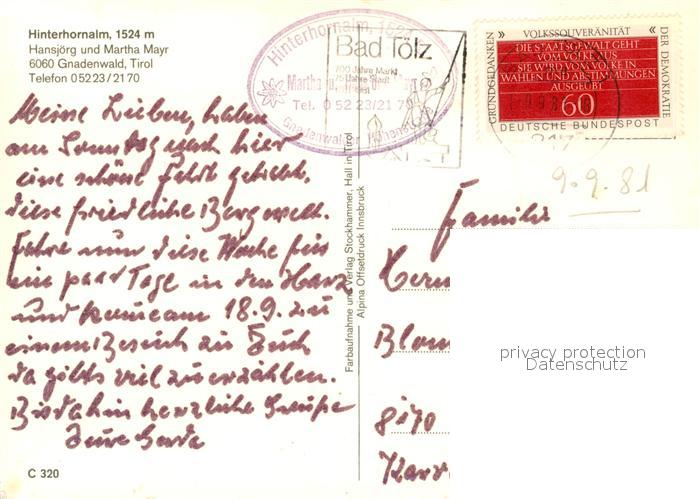 Hinterhornalm, 1524 m
Hansjörg und Martha Mayr
6060 Gnadenwald, Tirol
Telefon 0 52 23 / 21 70
Hinterhornalm, 15
Martha
Tel. 0 52 23/21 70
Gnadenwalder
Bad Tölz
Jahre Markt
75 Jahre Stadt
GRUNDGEDANKEN » VOLKSSOUVERÄNITÄT « DER DEMOKRATIE
DIE STAATSGEWALT GEHT
VOM VOLKE AUS
SIE WIRD VOM VOLKE IN
WAHLEN UND ABSTIMMUNGEN
AUSGEÜBT
60
DEUTSCHE BUNDESPOST
9.9.81
Meine Lieben, haben
am Sonntag nach hier
eine schöne Fahrt gehabt,
diese friedliche Bergwelt.
Fahre nun diese Woche für
ein paar Tage in den Harz
und komme am 18.9. zu
einem Besuch zu Euch
da gibts viel zu erzählen.
Bis dahin herzliche Grüße
Eure
Farbaufnahme und Verlag Stockhammer, Hall in Tirol
Alpina Offsetdruck Innsbruck
Familie
privacy protection
Datenschutz
C 320